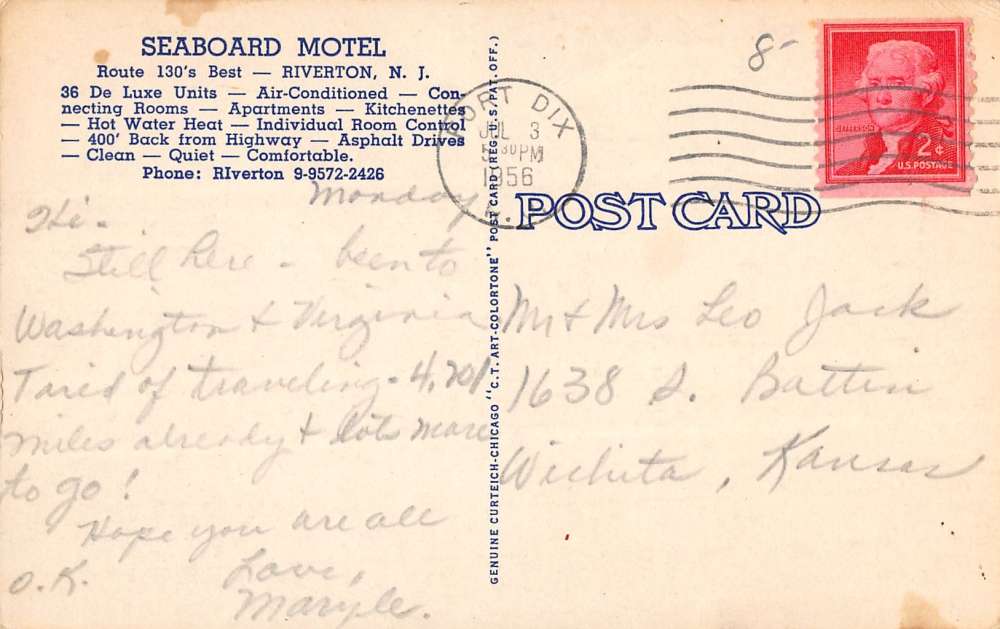 SEABOARD MOTEL
Route 130's Best — RIVERTON, N. J.
36 De Luxe Units — Air-Conditioned — Con-
necting Rooms — Apartments — Kitchenettes
— Hot Water Heat — Individual Room Control
— 400' Back from Highway — Asphalt Drives
— Clean — Quiet — Comfortable.
Phone: RIverton 9-9572-2426
Monday
Hi -
Still here - been to
Washington & Virginia
Tired of traveling - 4,701
miles already & lots more
to go!
Hope you are all
O.K. Love,
GENUINE CURTEICH-CHICAGO "C.T. ART-COLORTONE" POST CARD (REG. U.S. PAT. OFF.)
FORT DIX
JUL 3
5 30 PM
1956
8-
JEFFERSON
2¢
U.S. POSTAGE
POST CARD
Mr & Mrs Leo Jack
1638 S. Battin
Wichita, Kansas